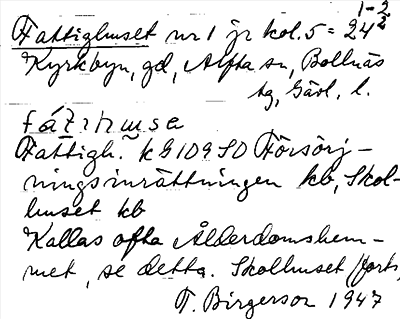 1-2
Fattighuset nr 1 jr kol. 5 = 24 2/2
Kyrkbyn, gd, Alfta sn, Bollnäs
tg, Gävl. l.
Fattigh. kb 109 SO Försörj-
ningsinrättningen kb, Skol-
huset kb
Kallas ofta Ålderdomshem-
met, se detta. Skolhuset (forts,
T. Birgerson 1947